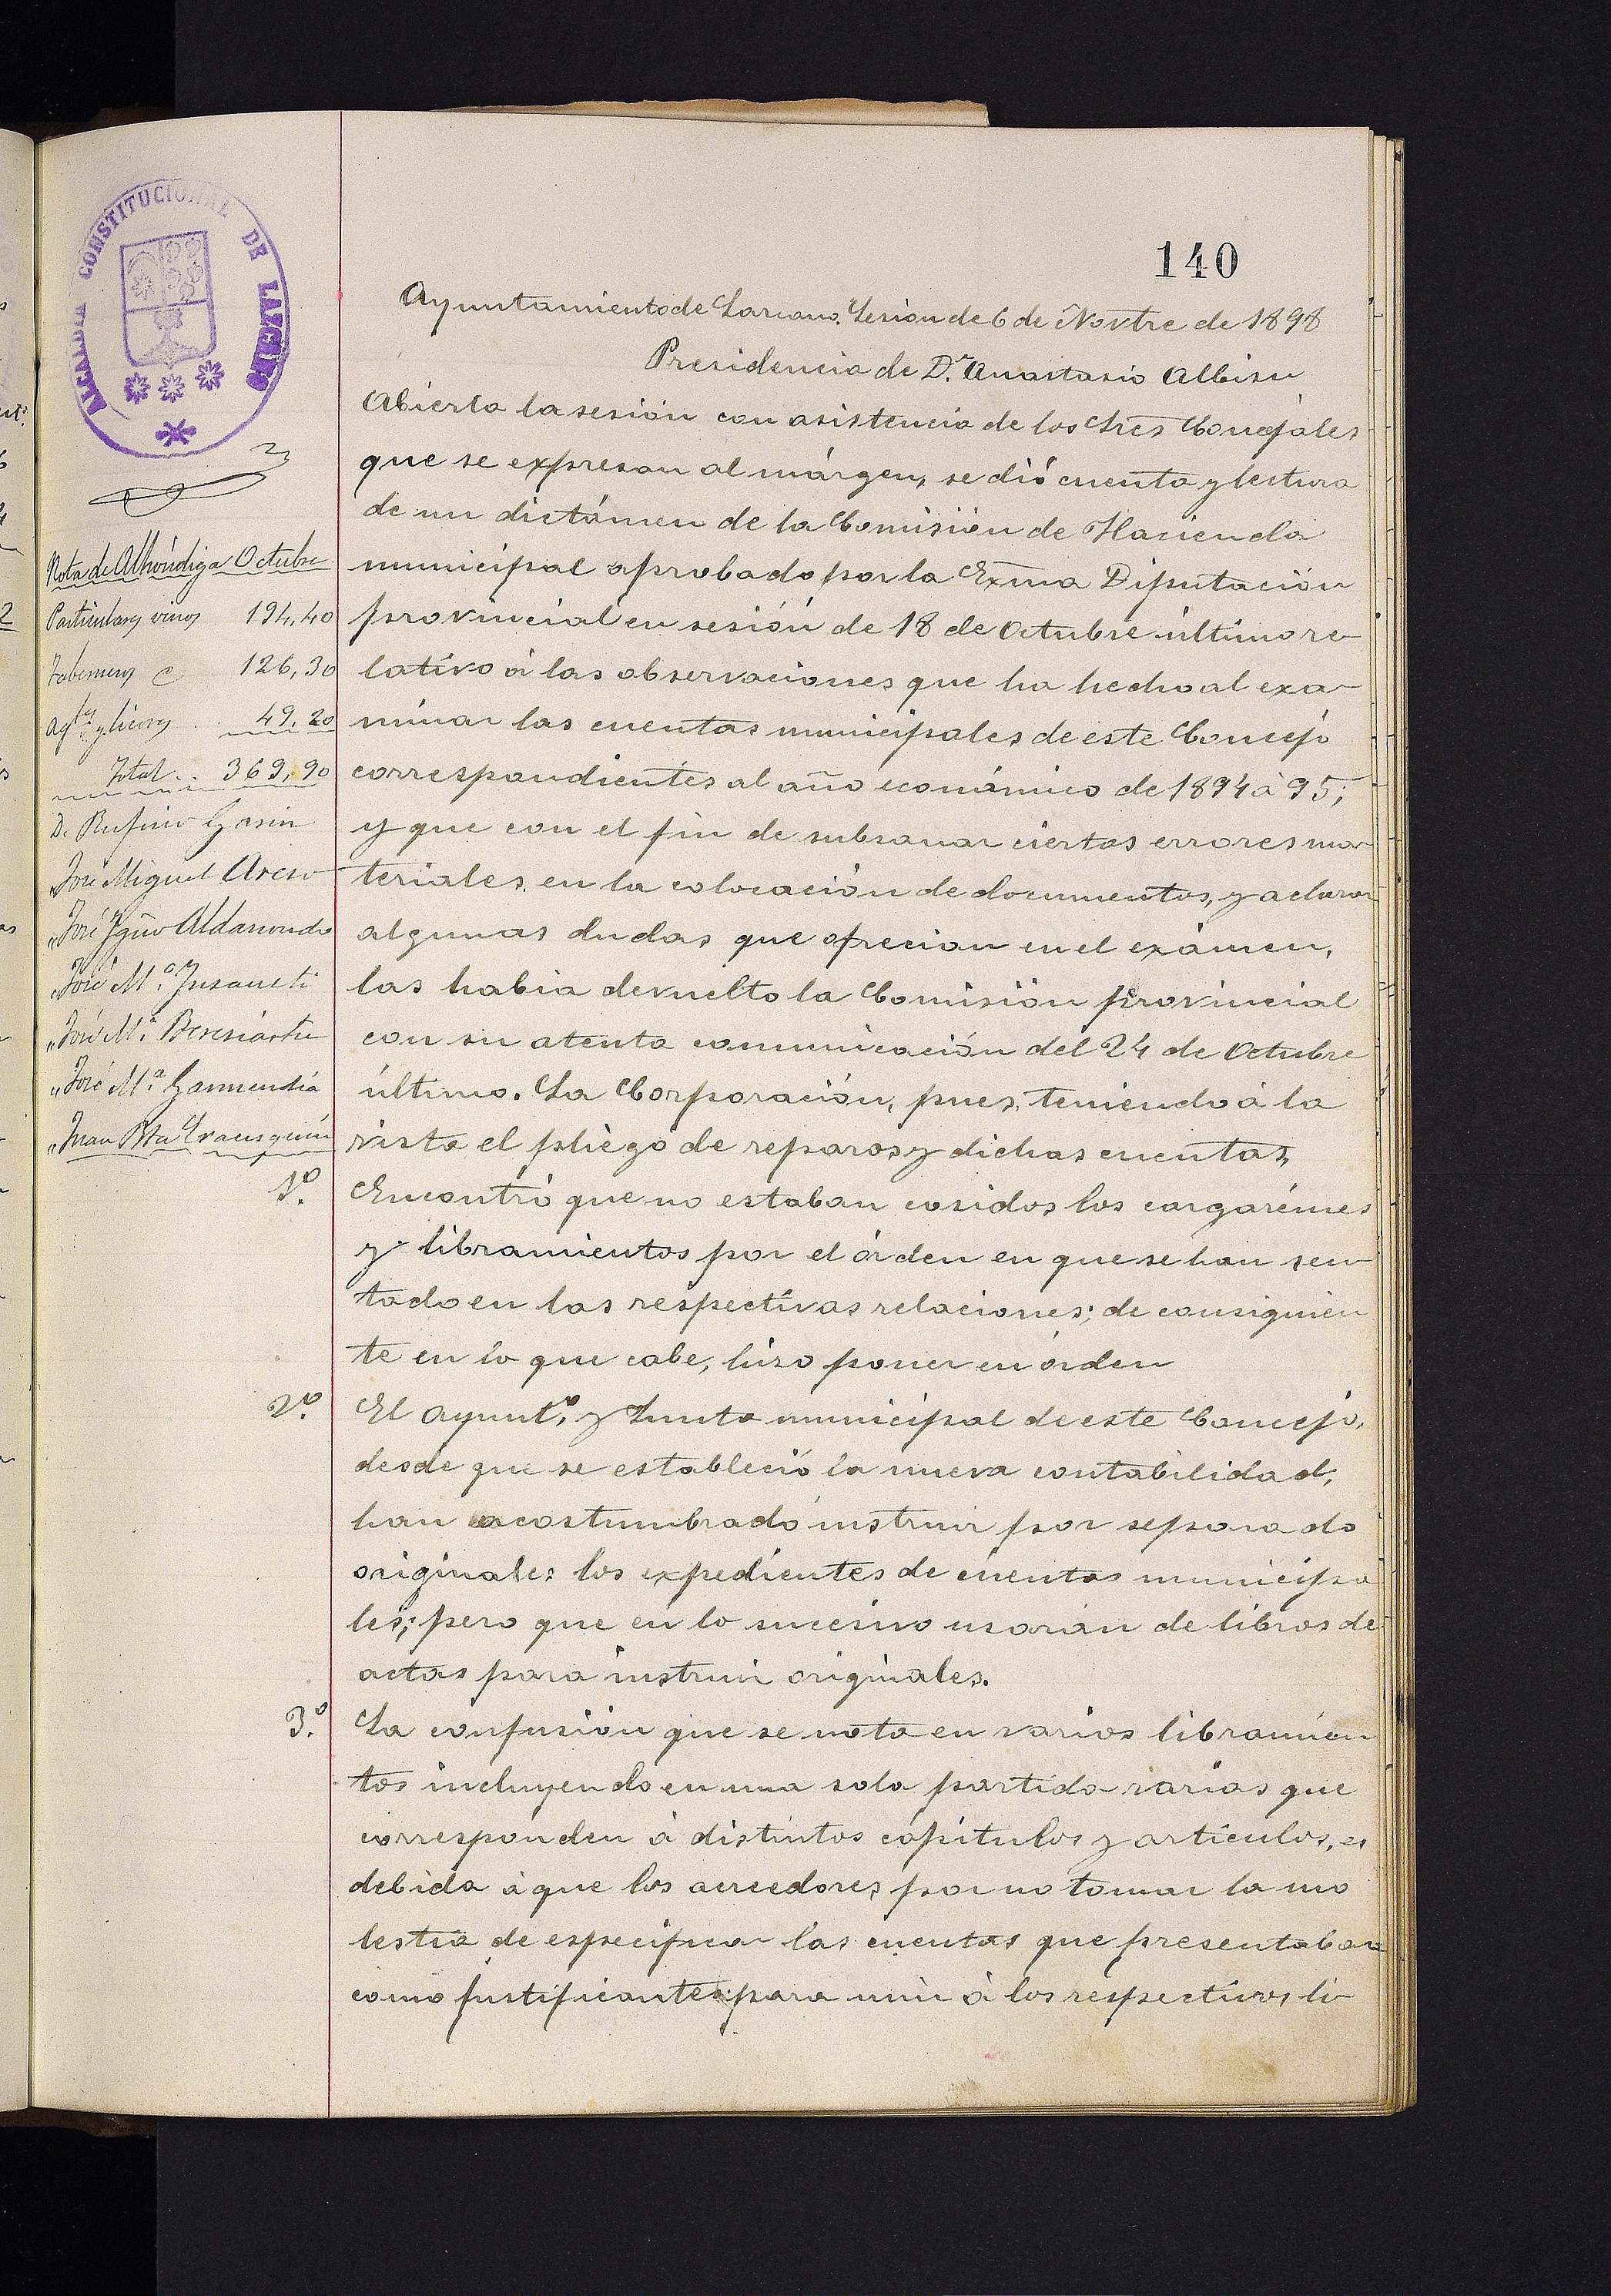 140
ALCALDIA CONSTITUCIONAL DE LAZCANO
Nota de Alhóndiga Octubre
Particulares vinos 194,40
Taberneros 126,30
Agtes y licores 49,20
Total.. 369,90
D. Rufino Garin
" José Miguel Areso
" José Igno Aldasoro
" José M.ª Insausti
" José M.ª Beresiartu
" José M.ª Garmendia
" Juan Bta Irausquin
Ayuntamiento de Lazcano. Sesion de 6 de Novbre de 1898
Presidencia de D.n Anastasio Albisu
Abierta la sesión con asistencia de los Sres Concejales
que se expresan al márgen, se dió cuenta y lectura
de un dictámen de la Comisión de Hacienda
municipal aprobado por la Exma Diputación
provincial en sesión de 18 de Octubre último re-
lativo á las observaciones que ha hecho al exa-
minar las cuentas municipales de este Concejo
correspondientes al año económico de 1894 á 95;
y que con el fin de subsanar ciertos errores ma-
teriales en la colocación de documentos, y aclarar
algunas dudas que ofrecian en el exámen,
las habia devuelto la Comisión provincial
con su atenta comunicación del 24 de Octubre
último. La Corporación, pues, teniendo á la
vista el pliego de reparos y dichas cuentas,
1.º Encontró que no estaban cosidos los cargarémes
y libramientos por el órden en que se han sen-
tado en las respectivas relaciones; de consiguien
te en lo que cabe, hizo poner en órden
2.º El Ayunt.º y Junta municipal de este Concejo,
desde que se estableció la nueva contabilidad,
han acostumbrado instruir por separado
originales los expedientes de cuentas municipa
les; pero que en lo sucesivo usarán de libros de
actas para instruir originales.
3.º La confusión que se nota en varios libramien
tos incluyendo en una sola partida varias que
corresponden á distintos cápitulos y artículos, es
debida á que los acreedores por no tomar la mo
lestia de especificar las cuentas que presentaban
como justificantes para unir á los respectivos li-